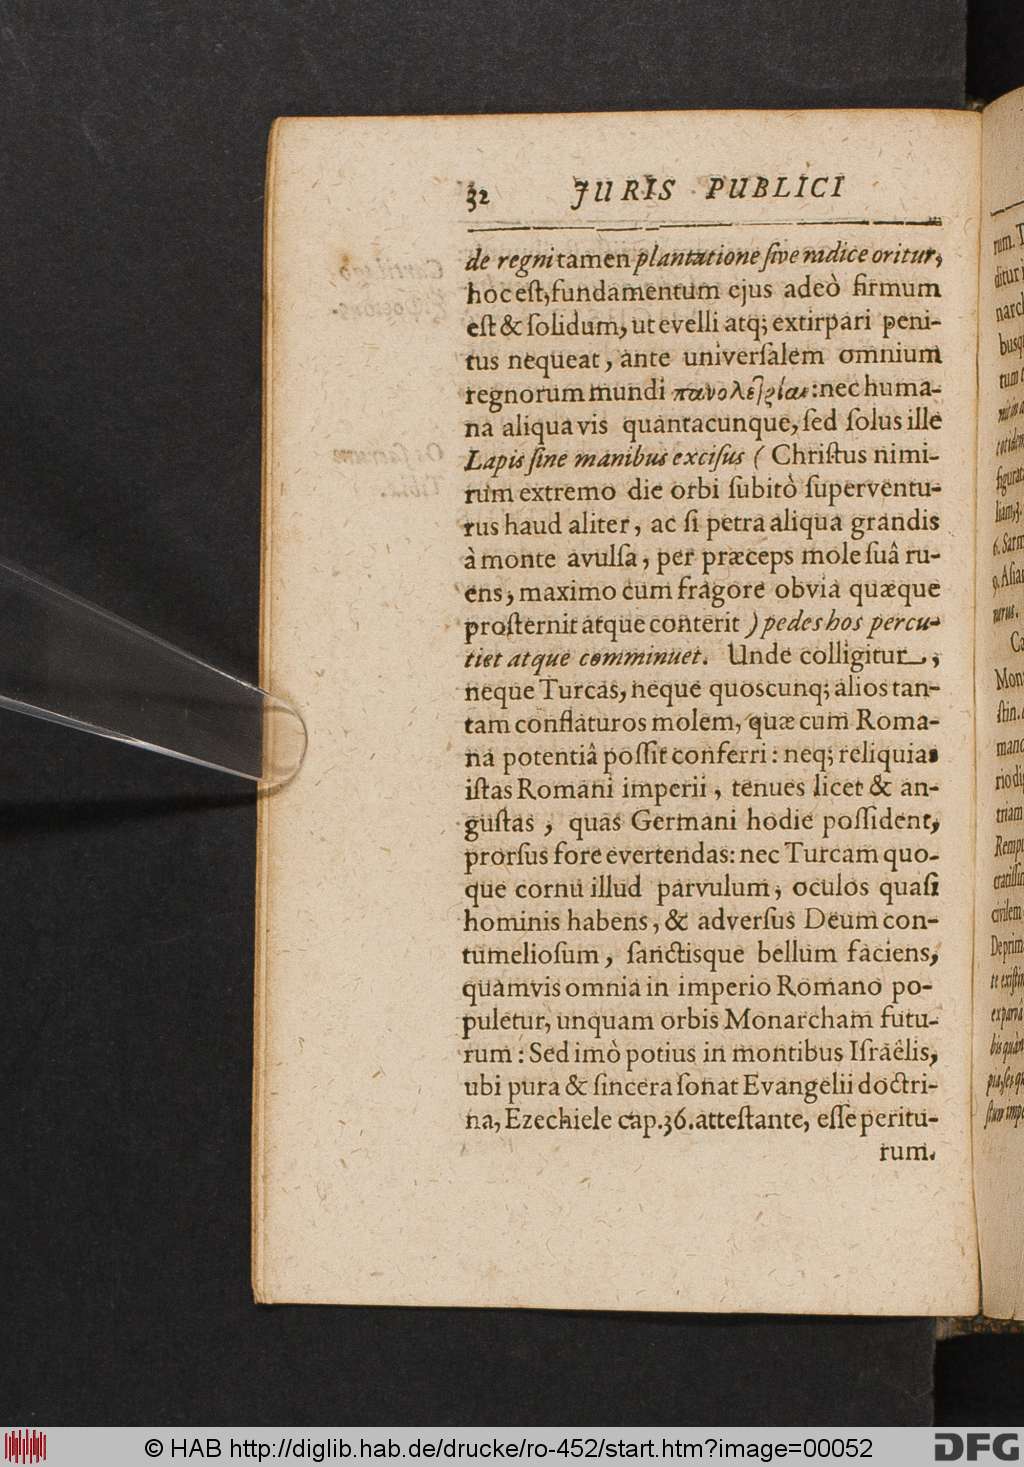 32 JURIS PUBLICI
de regni tamen plantatione ſive radice oritur,
hoc eſt, fundamentum ejus adeò firmum
eſt & ſolidum, ut evelli atq; extirpari peni-
tus nequeat, ante univerſalem omnium
regnorum mundi πανολεθρίαν: nec huma-
na aliqua vis quantacunque, ſed ſolus ille
Lapis ſine manibus exciſus ( Chriſtus nimi-
rum extremo die orbi ſubitò ſuperventu-
rus haud aliter, ac ſi petra aliqua grandis
à monte avulſa, per præceps mole ſuâ ru-
ens, maximo cum fragore obvia quæque
proſternit atque conterit ) pedes hos percu-
tiet atque comminuet. Unde colligitur,
neque Turcas, neque quoscunq; alios tan-
tam conflaturos molem, quæ cum Roma-
na potentiâ poſſit conferri: neq; reliquias
iſtas Romani imperii, tenues licet & an-
guſtas, quas Germani hodie poſſident,
prorſus fore evertendas: nec Turcam quo-
que cornu illud parvulum, oculos quaſi
hominis habens, & adverſus Deum con-
tumelioſum, ſanctisque bellum faciens,
quamvis omnia in imperio Romano po-
puletur, unquam orbis Monarcham futu-
rum: Sed imò potius in montibus Iſraêlis,
ubi pura & ſincera ſonat Evangelii doctri-
na, Ezechiele cap.36. atteſtante, eſſe peritu-
rum.
© HAB http://diglib.hab.de/drucke/ro-452/start.htm?image=00052
DFG